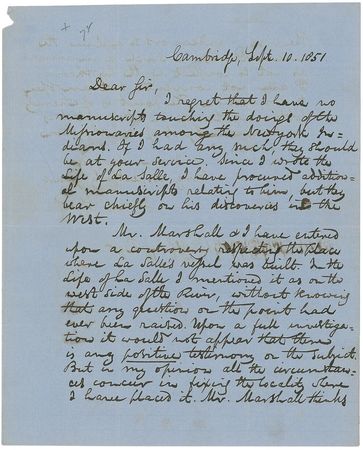 Cambridge, Sept. 10. 1851
Dear Sir,
I regret that I have no
manuscripts touching the doings of the
Missionaries among the New York In-
dians. If I had any such, they should
be at your service. Since I wrote the
Life of La Salle, I have procured addition-
al manuscripts relating to him, but they
bear chiefly on his discoveries in the
West.
Mr. Marshall & I have entered
upon a controversy the place
where La Salle's vessel was built. In the
Life of La Salle I mentioned it as on the
west side of the River, without knowing
that any question on the point had
ever been raised. Upon a full investiga-
tion it would not appear that there
is any positive testimony on the subject.
But in my opinion all the circumstan-
ces concur in fixing the locality where
I have placed it. Mr. Marshall thinks